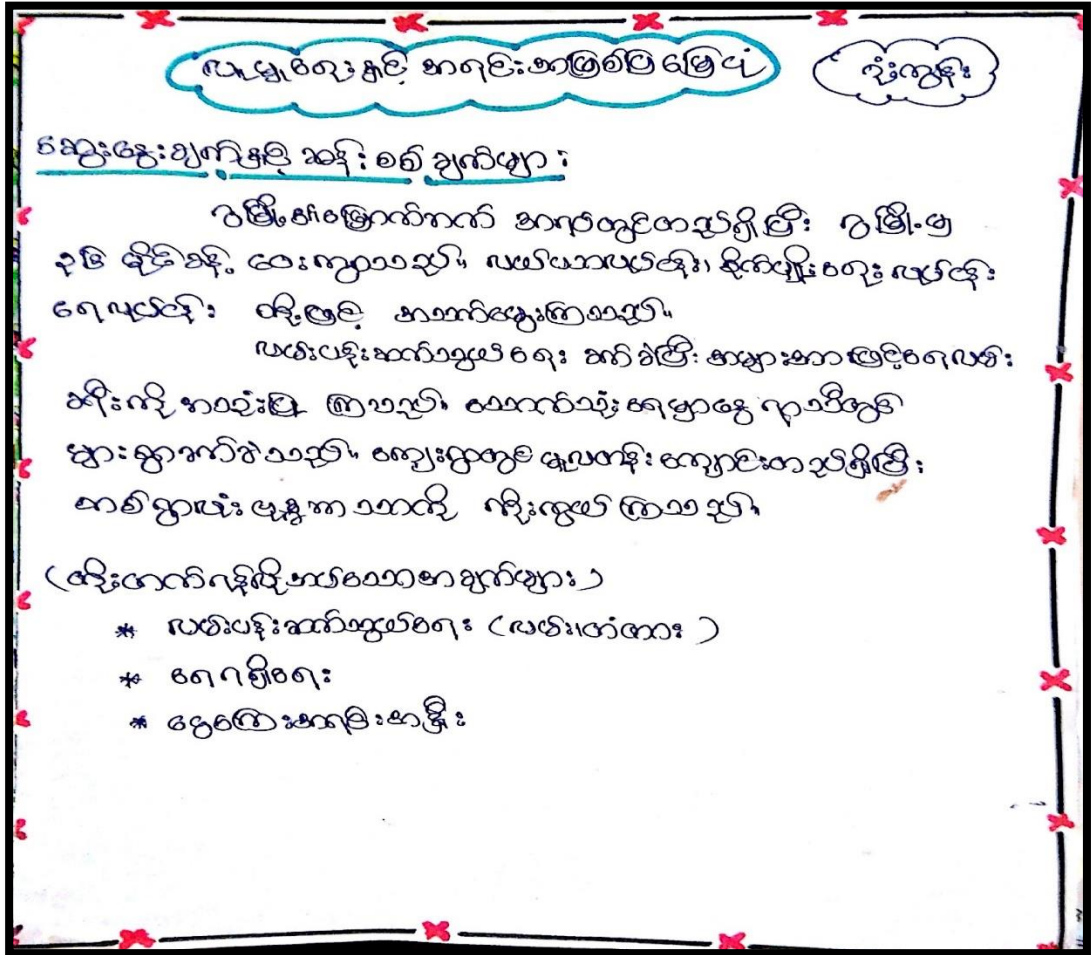 လူမှုရေးနှင့် အရင်းအမြစ်ပြမြေပုံ
ဒုံးကျွန်း
ဆွေးနွေးချက်နှင့် ဆန်းစစ်ချက်များ :
ဂွမြို့၏မြောက်ဘက် အရပ်တွင်တည်ရှိပြီး ဂွမြို့မှ
မိုင်ခန့် ဝေးကွာသည်။ လယ်ယာလုပ်ငန်း၊ စိုက်ပျိုးရေး လုပ်ငန်း
ရေလုပ်ငန်း တို့ဖြင့် အသက်မွေးကြသည်။
လမ်းပန်းဆက်သွယ်ရေး ခက်ခဲပြီး အများအားဖြင့်ရေလမ်း
ခရီးကို အသုံးပြု ကြသည်။ သောက်သုံးရေမှာနွေ ရာသီတွင်
ရှားခက်ခဲသည်။ ကျေးရွာတွင် မူလတန်းကျောင်းတည်ရှိပြီး
တစ်ရွာလုံး ဗုဒ္ဓဘာသာကို ကိုးကွယ်ကြသည်။
(တိုးတက်ရန်လိုအပ်သောအချက်များ)
* လမ်းပန်းဆက်သွယ်ရေး (လမ်း၊တံတား)
* ရေရရှိရေး
* ငွေကြေးအရင်းအနှီး